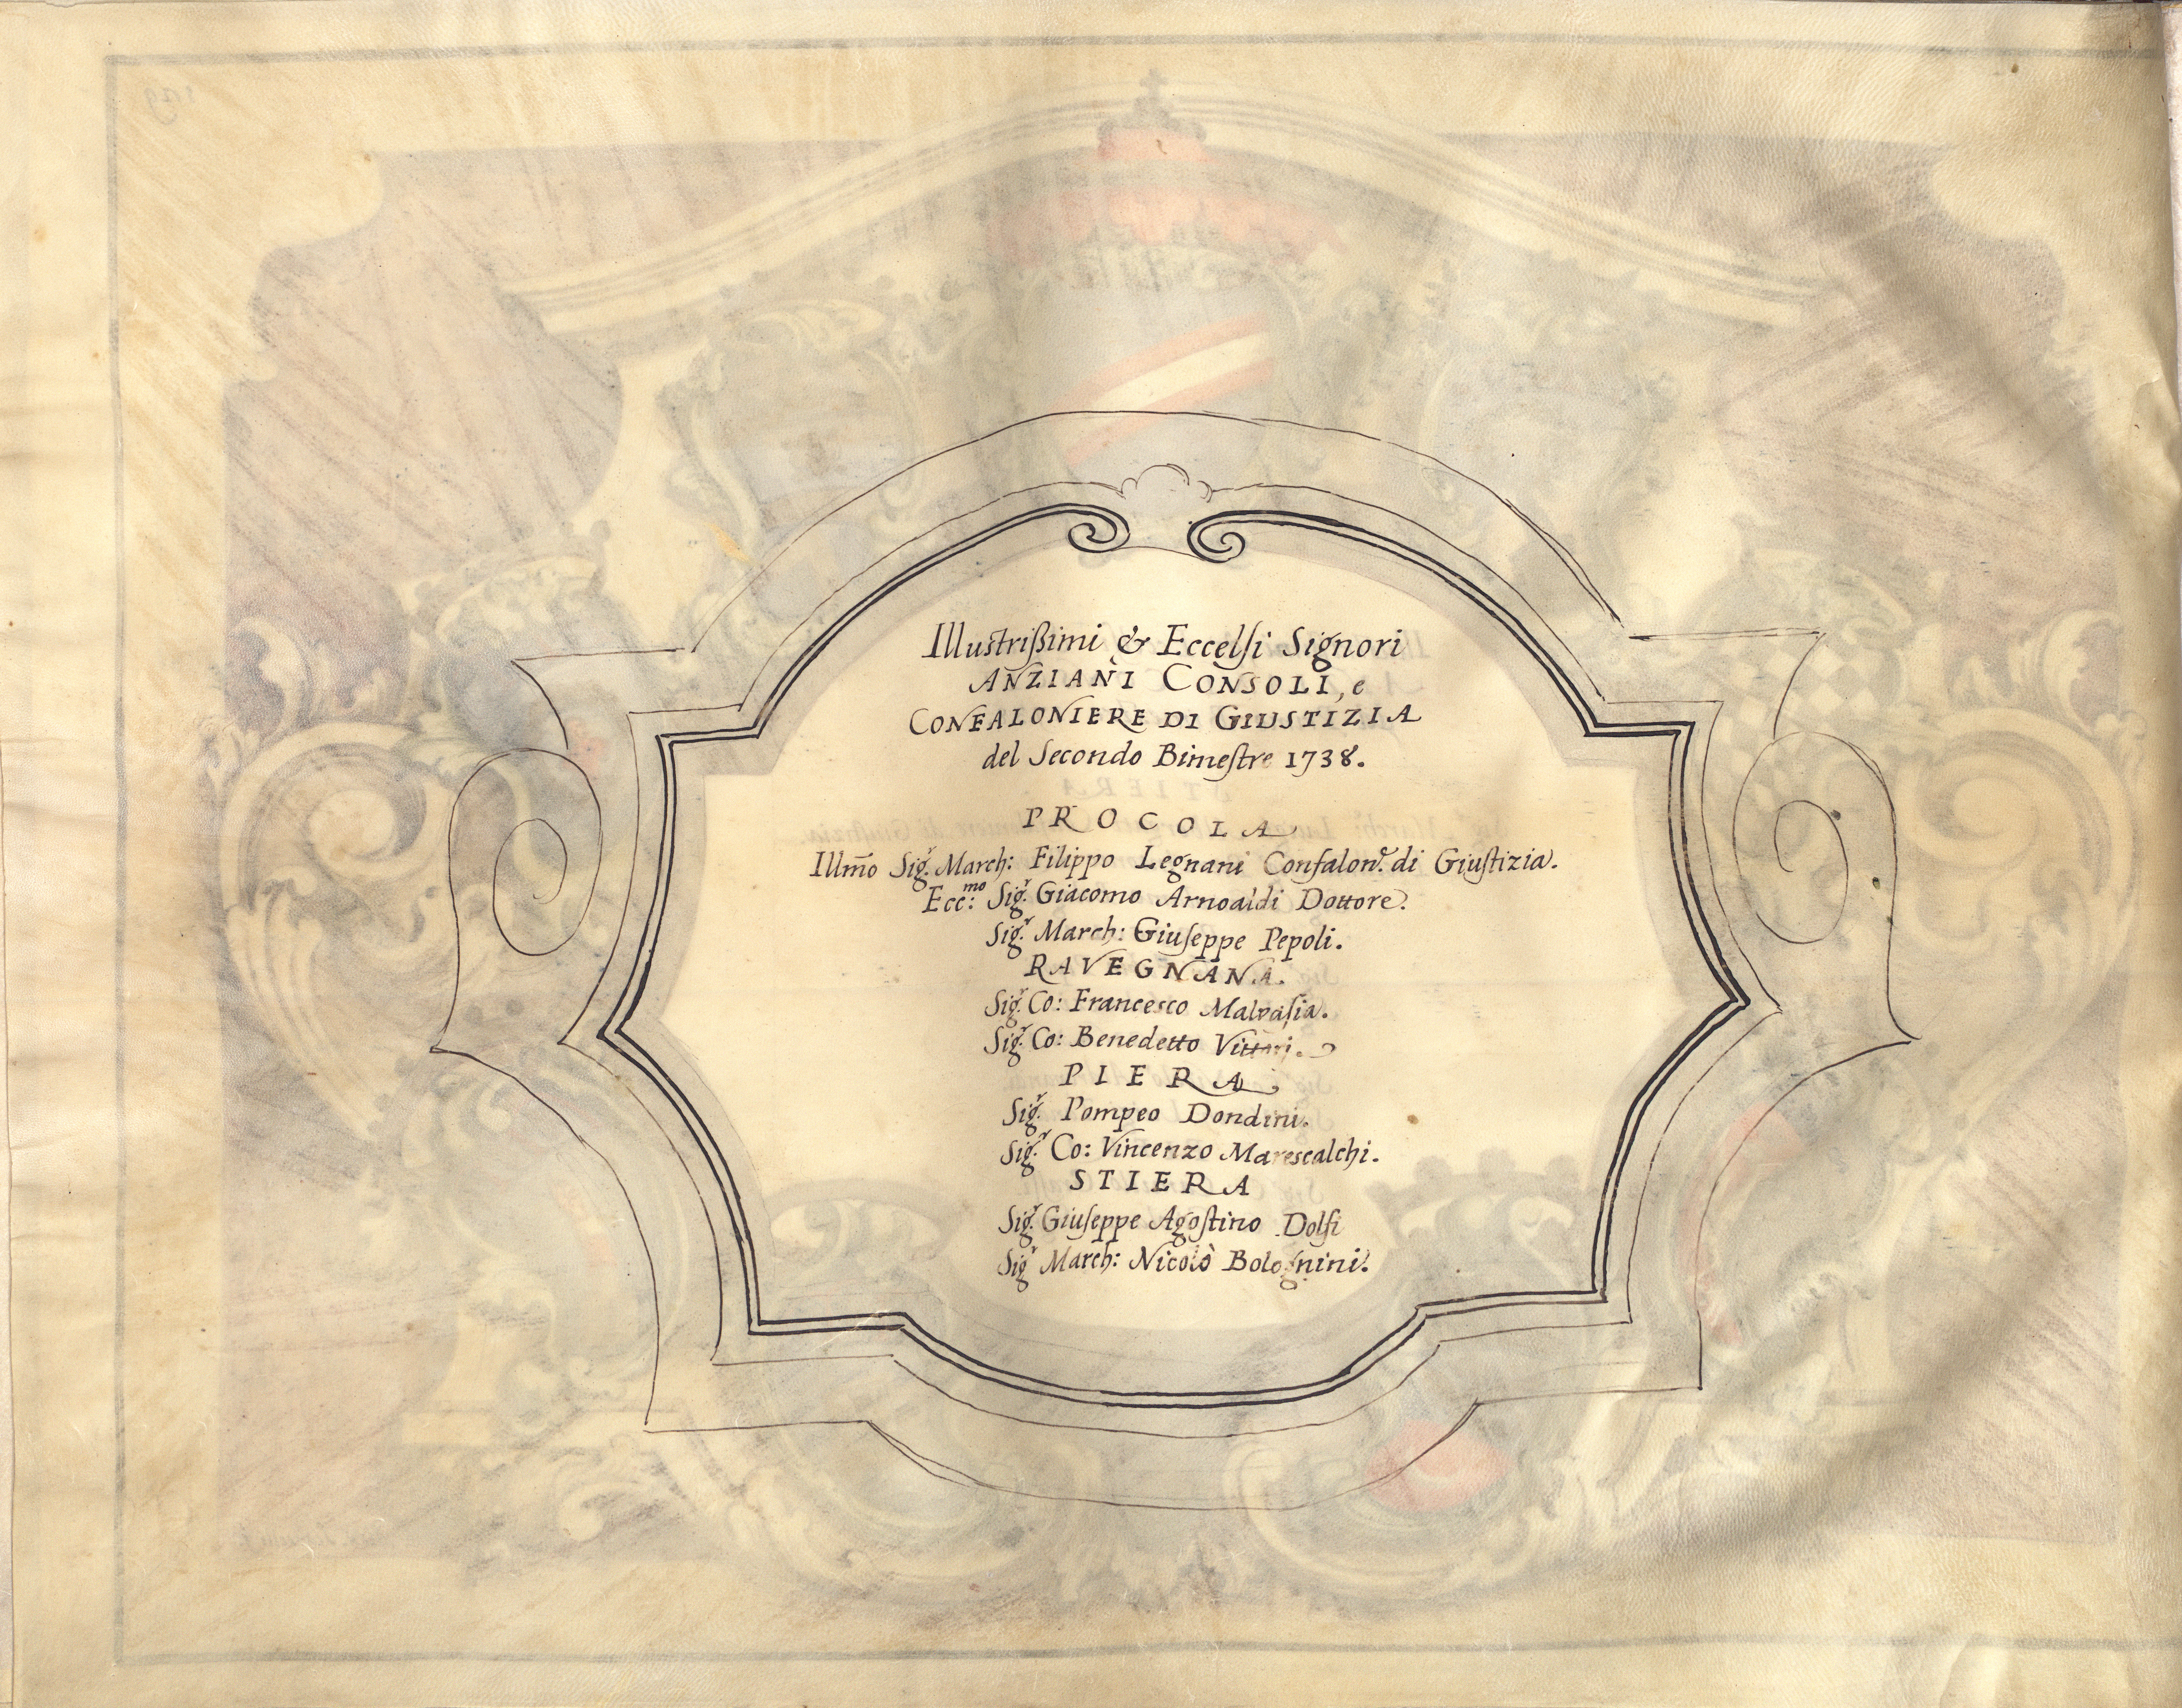 Illustrissimi & Eccelsi Signori
ANZIANI CONSOLI, e
CONFALONIERE DI GIUSTIZIA
del Secondo Bimestre 1738.
PROCOLA
Illm̃o Sig.r March: Filippo Legnani Confalon.e di Giustizia.
Ecc:mo Sig.r Giacomo Arnoaldi Dottore.
Sig.r March: Giuseppe Pepoli.
RAVEGNANA.
Sig.r Co: Francesco Malvasia.
Sig.r Co: Benedetto Vittori.
PIERA
Sig.r Pompeo Dondini.
Sig.r Co: Vincenzo Marescalchi.
STIERA
Sig.r Giuseppe Agostino Dolfi
Sig.r March: Nicolò Bolognini.